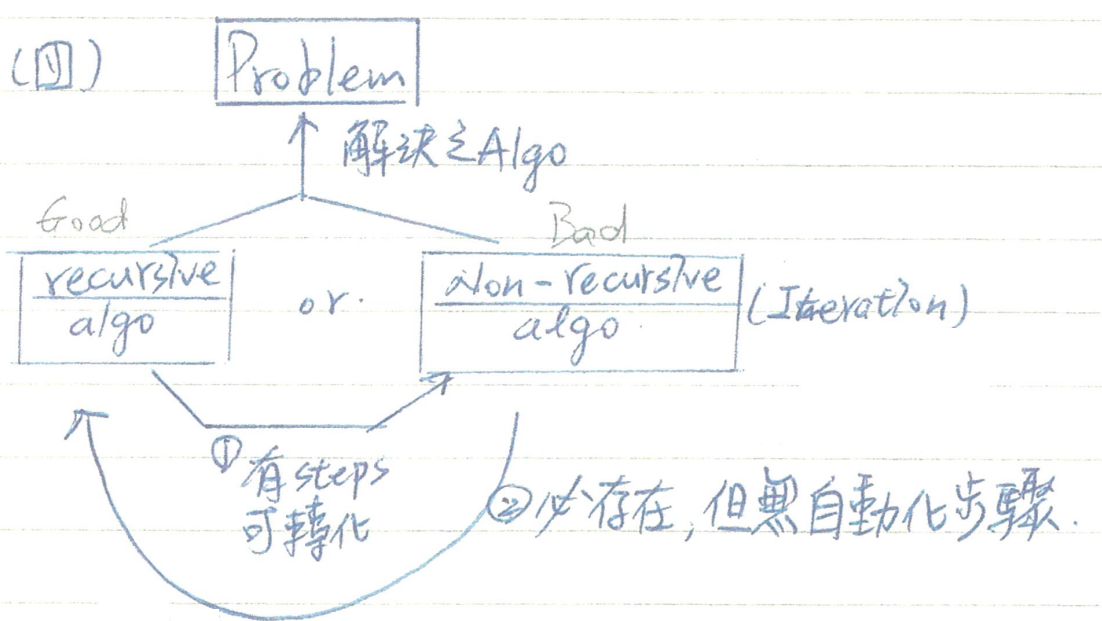 (四)
Problem
解決之Algo
Good
Bad
recursive
algo
or.
Non-recursive
algo
(Iteration)
① 有steps
可轉化
②必存在,但無自動化步驟.